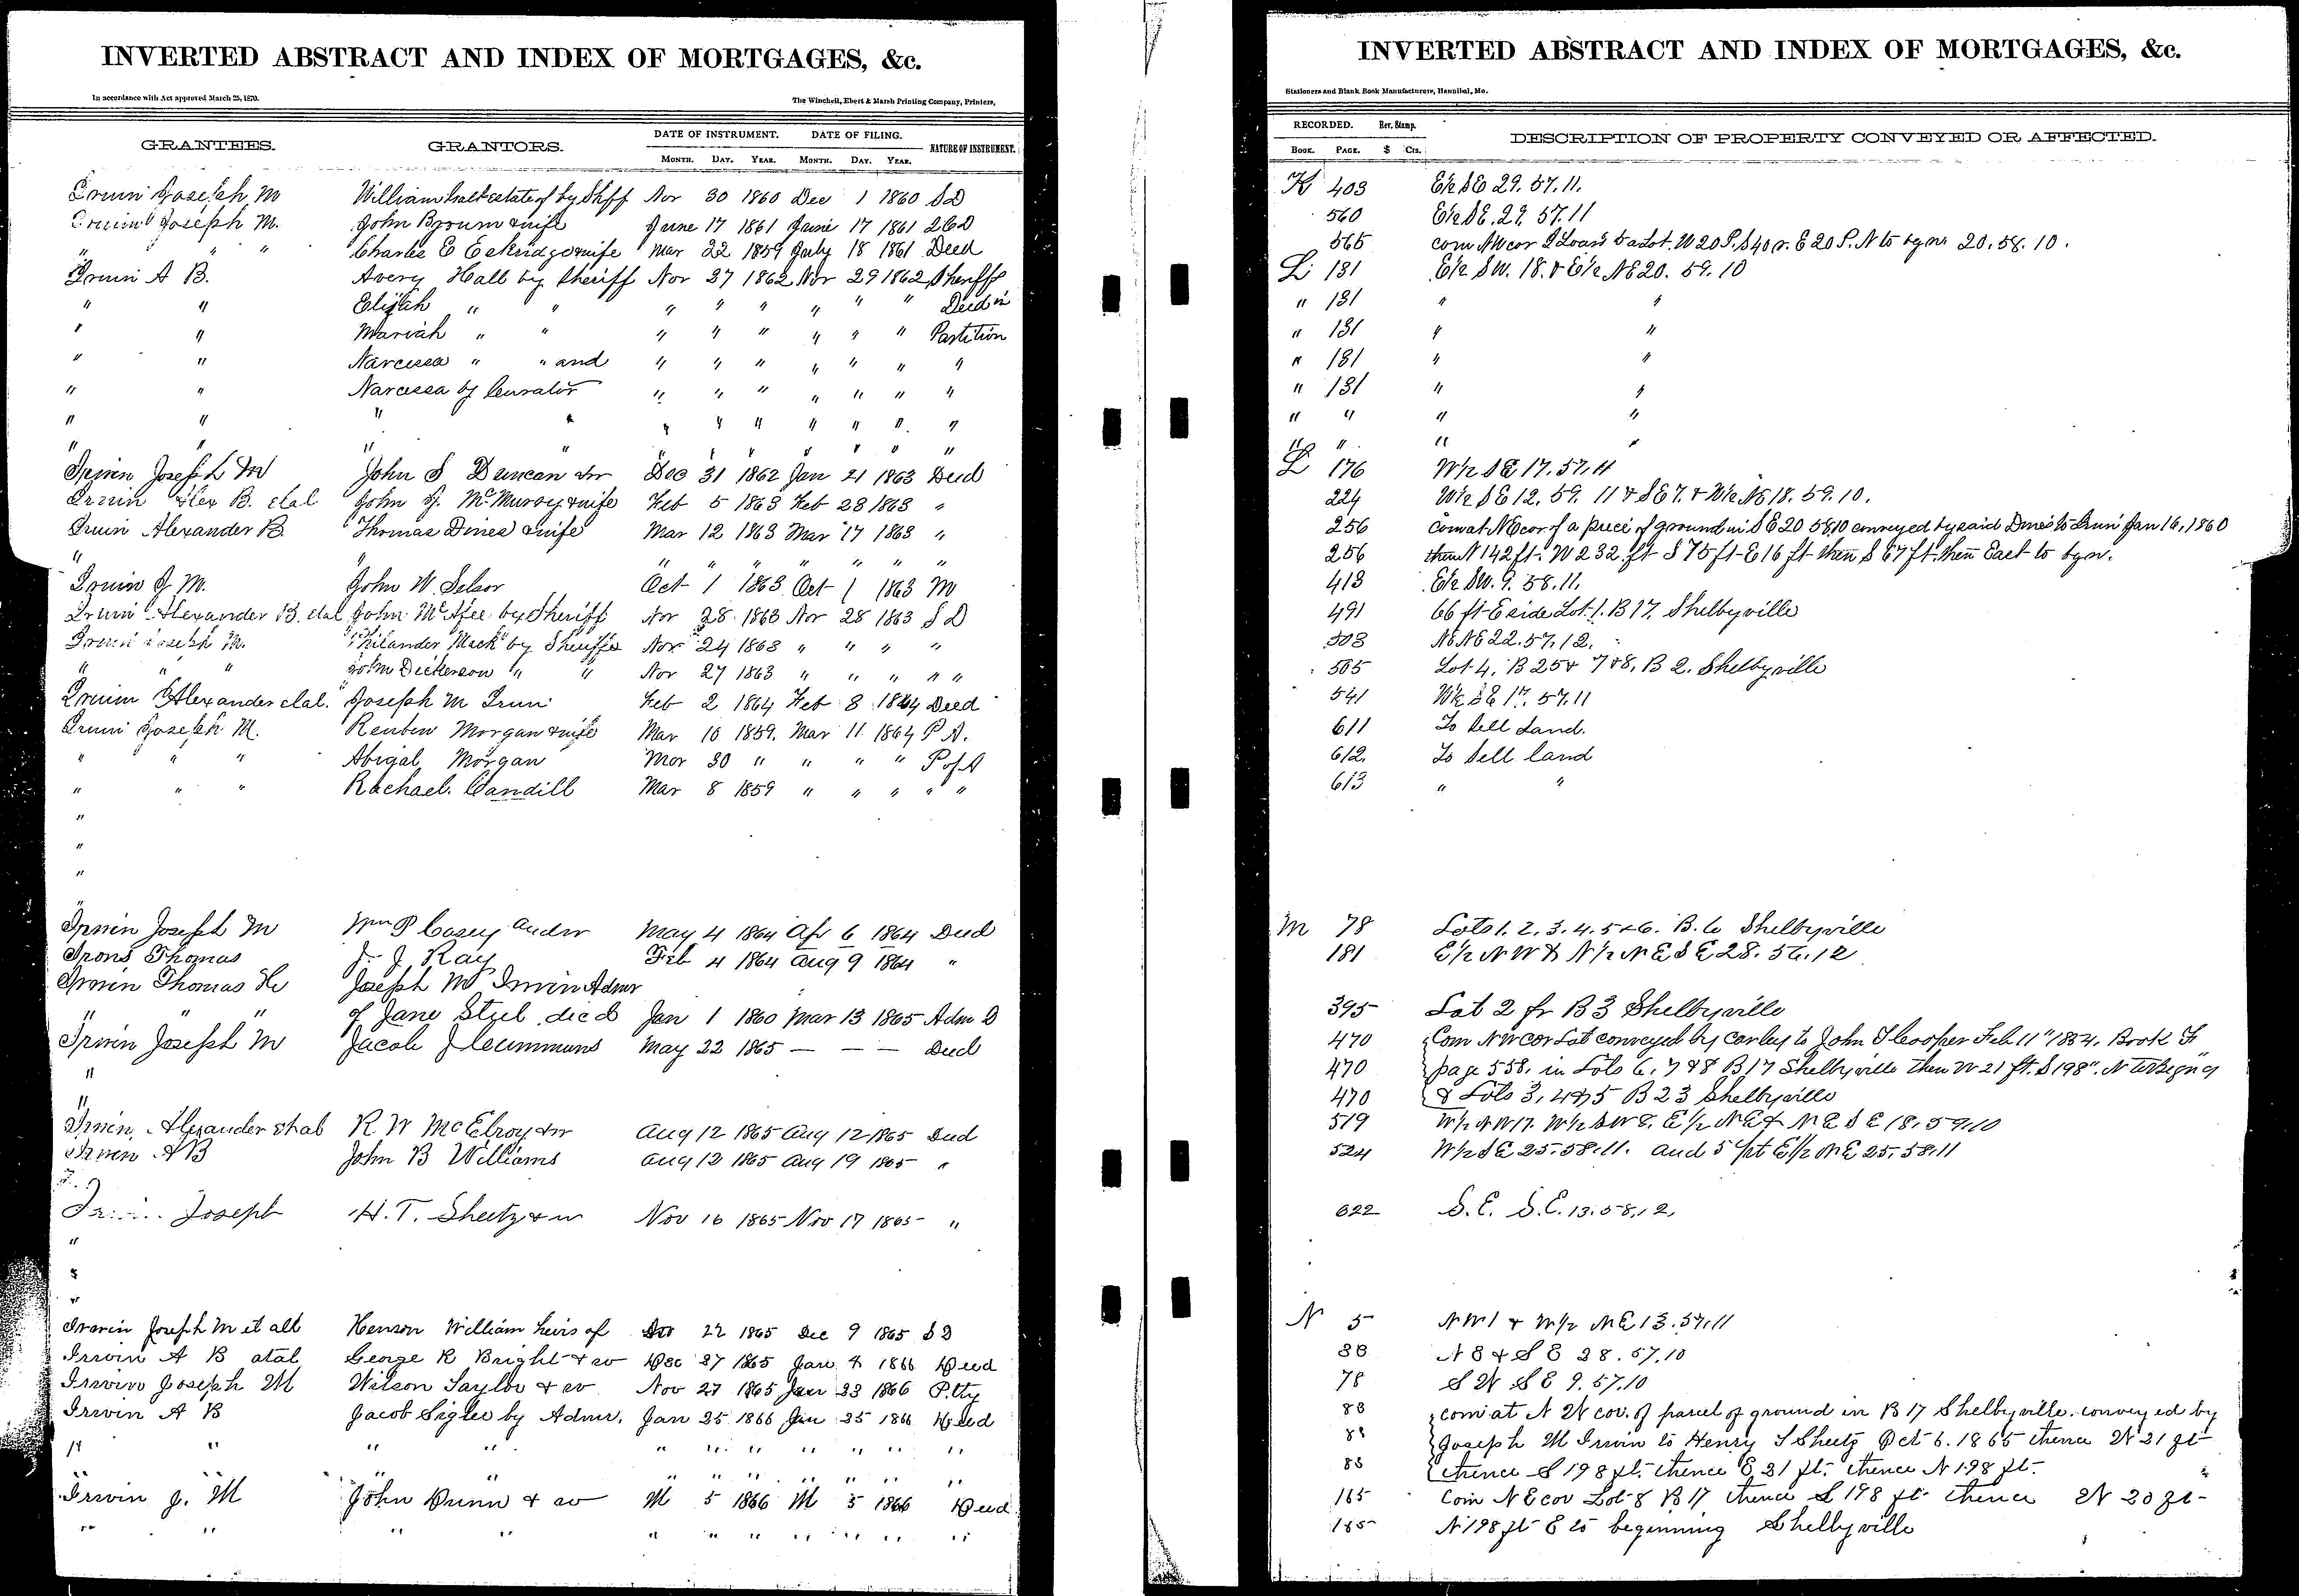 INVERTED ABSTRACT AND INDEX OF MORTGAGES, &c.
In accordance with Act approved March 25, 1870.
The Winchell, Ebert & Marsh Printing Company, Printers,
GRANTEES. GRANTORS. DATE OF INSTRUMENT. DATE OF FILING. NATURE OF INSTRUMENT.
MONTH. DAY. YEAR. MONTH. DAY. YEAR.
Irwin Joseph M William Galt estate of by Shff Nov 30 1860 Dec 1 1860 S D
Irwin Joseph M. John Brown & wife June 17 1861 June 17 1861
" " " Charles E Eskridge & wife Mar 22 1859 July 18 1861 Deed
Irwin A B. Avery Hall by Sheriff Nov 27 1862 Nov 29 1862 Sheriffs
" " Elijah " " " " " " " " Deed in
" " Mariah " " " " " " " " Partition
" " Narcissa " " and " " " " " " "
" " Narcissa by Curator " " " " " " "
" " " " " " " " " " "
" " " " " " " " " " "
Irwin Joseph M John S Duncan & w Dec 31 1862 Jan 21 1863 Deed
Irwin Alex B. etal John J. McMurry & wife Feb 5 1863 Feb 28 1863 "
Irwin Alexander B. Thomas Dines & wife Mar 12 1863 Mar 17 1863 "
" " " " " " " " "
Irwin J M. John W. Selsor Oct 1 1863 Oct 1 1863 M
Irwin Alexander B. etal John McAfee by Sheriff Nov 28 1863 Nov 28 1863 S D
Irwin Joseph M. Philander Mack by Sheriff Nov 24 1863 " " " "
" " " John Dickerson " " Nov 27 1863 " " " " "
Irwin Alexander etal. Joseph M Irwin Feb 2 1864 Feb 8 1864 Deed
Irwin Joseph M. Reuben Morgan & wife Mar 10 1859. Mar 11 1864 P A.
" " " Abigal Morgan Mar 30 " " " " P of A
" " " Rachael Candill Mar 8 1859 " " " " "
"
"
"
"
Irwin Joseph M Wm P Casey and w May 4 1864 Apr 6 1864 Deed
Irons Thomas J. J. Ray Feb 4 1864 Aug 9 1864 "
Irwin Thomas H Joseph M Irwin Admr
" " of Jane Steel decd Jan 1 1860 Mar 13 1865 Adm D
Irwin Joseph M Jacob J Cummuns May 22 1865 — — — Deed
"
"
Irwin, Alexander etal R W McElroy & w Aug 12 1865 Aug 12 1865 Deed
Irwin A B John B Williams Aug 12 1865 Aug 19 1865 "
Joseph H. T. Sheetz & w Nov 16 1865 Nov 17 1865 "
"
"
"
Irwin Joseph M et all Henson William heirs of Nov 22 1865 Dec 9 1865 S D
Irwin A B etal George R Bright & w Dec 27 1865 Jan 4 1866 Deed
Irwin Joseph M Wilson Taylor & w Nov 27 1865 Jan 23 1866 P. tty
Irwin A B Jacob Sigler by Admr. Jan 25 1866 Jan 25 1866 Deed
" " " " " " " " " " "
" " " " " " " " " " "
Irwin J. M John Dunn & w M 5 1866 M 5 1866 Deed
" " " " " " " " " " "
INVERTED ABSTRACT AND INDEX OF MORTGAGES, &c.
Stationers and Blank Book Manufacturers, Hannibal, Mo.
RECORDED. Rev. Stamp. DESCRIPTION OF PROPERTY CONVEYED OR AFFECTED.
BOOK. PAGE. $ Cts.
K 403 E½ SE 29. 57. 11.
560 E½ SE. 29 57. 11
565 com NW cor 5 a Lot. W 20 P. S 40 P. E 20 P. N to bgnr 20. 58. 10.
L 131 E½ SW. 18. & E½ NE 20. 59. 10
" 131 " "
" 131 " "
" 131 " "
" 131 " "
" " " "
" " " "
L 176 W½ SE 17. 57. 11
224 W½ SE 12. 59. 11 & SE 7. & W½ NE 18. 59. 10.
256 Com at NE cor of a piece of ground in SE 20 58 10 conveyed by said Dines to Irwin Jan 16, 1860
256 then N 142 ft. W 232 ft S 75 ft E 16 ft then S 67 ft then East to bgn.
413 E½ SW. 9. 58. 11.
491 66 ft E side Lot 1. B 17. Shelbyville
503 NE NE 22. 57. 12.
505 Lot 4. B 25 & 7 & 8, B 2. Shelbyville
541 W½ SE 17. 57. 11
611 To Sell Land.
612. To Sell land
613 " "
M 78 Lots 1. 2. 3. 4. 5 & 6. B. 6 Shelbyville
181 E½ N W & N½ N E S E 28. 56. 12
395 Lot 2 fr B 3 Shelbyville
470 Com NW cor Lot conveyed by Carley to John T Cooper Feb 11" 1834. Book F
470 page 558. in Lots 6, 7 & 8 B 17 Shelbyville then W 21 ft. S 198". N to Begng
470 & Lots 3, 4 & 5 B 23 Shelbyville
519 W½ N W 17. W½ S W 8. E½ N E & N E S E 18. 59. 10
524 W½ S E 25. 58. 11. and 5 pt E½ N E 25. 58. 11
622 S. E. S. E. 13. 58. 12.
N 5 N W 1 & W½ N E 13. 57. 11
38 N 8 & S E 28. 57. 10
78 S W S E 9. 57. 10
88 com at N W cor. of parcel of ground in B 17 Shelbyville. conveyed by
88 Joseph M Irwin to Henry T Sheetz Oct 6. 1865 thence W 21 ft
88 thence S 198 ft. thence E 21 ft. thence N 198 ft.
165 Com N E cor Lot 8 B 17 thence S 198 ft thence W 20 ft
165 N 198 ft E to beginning Shelbyville